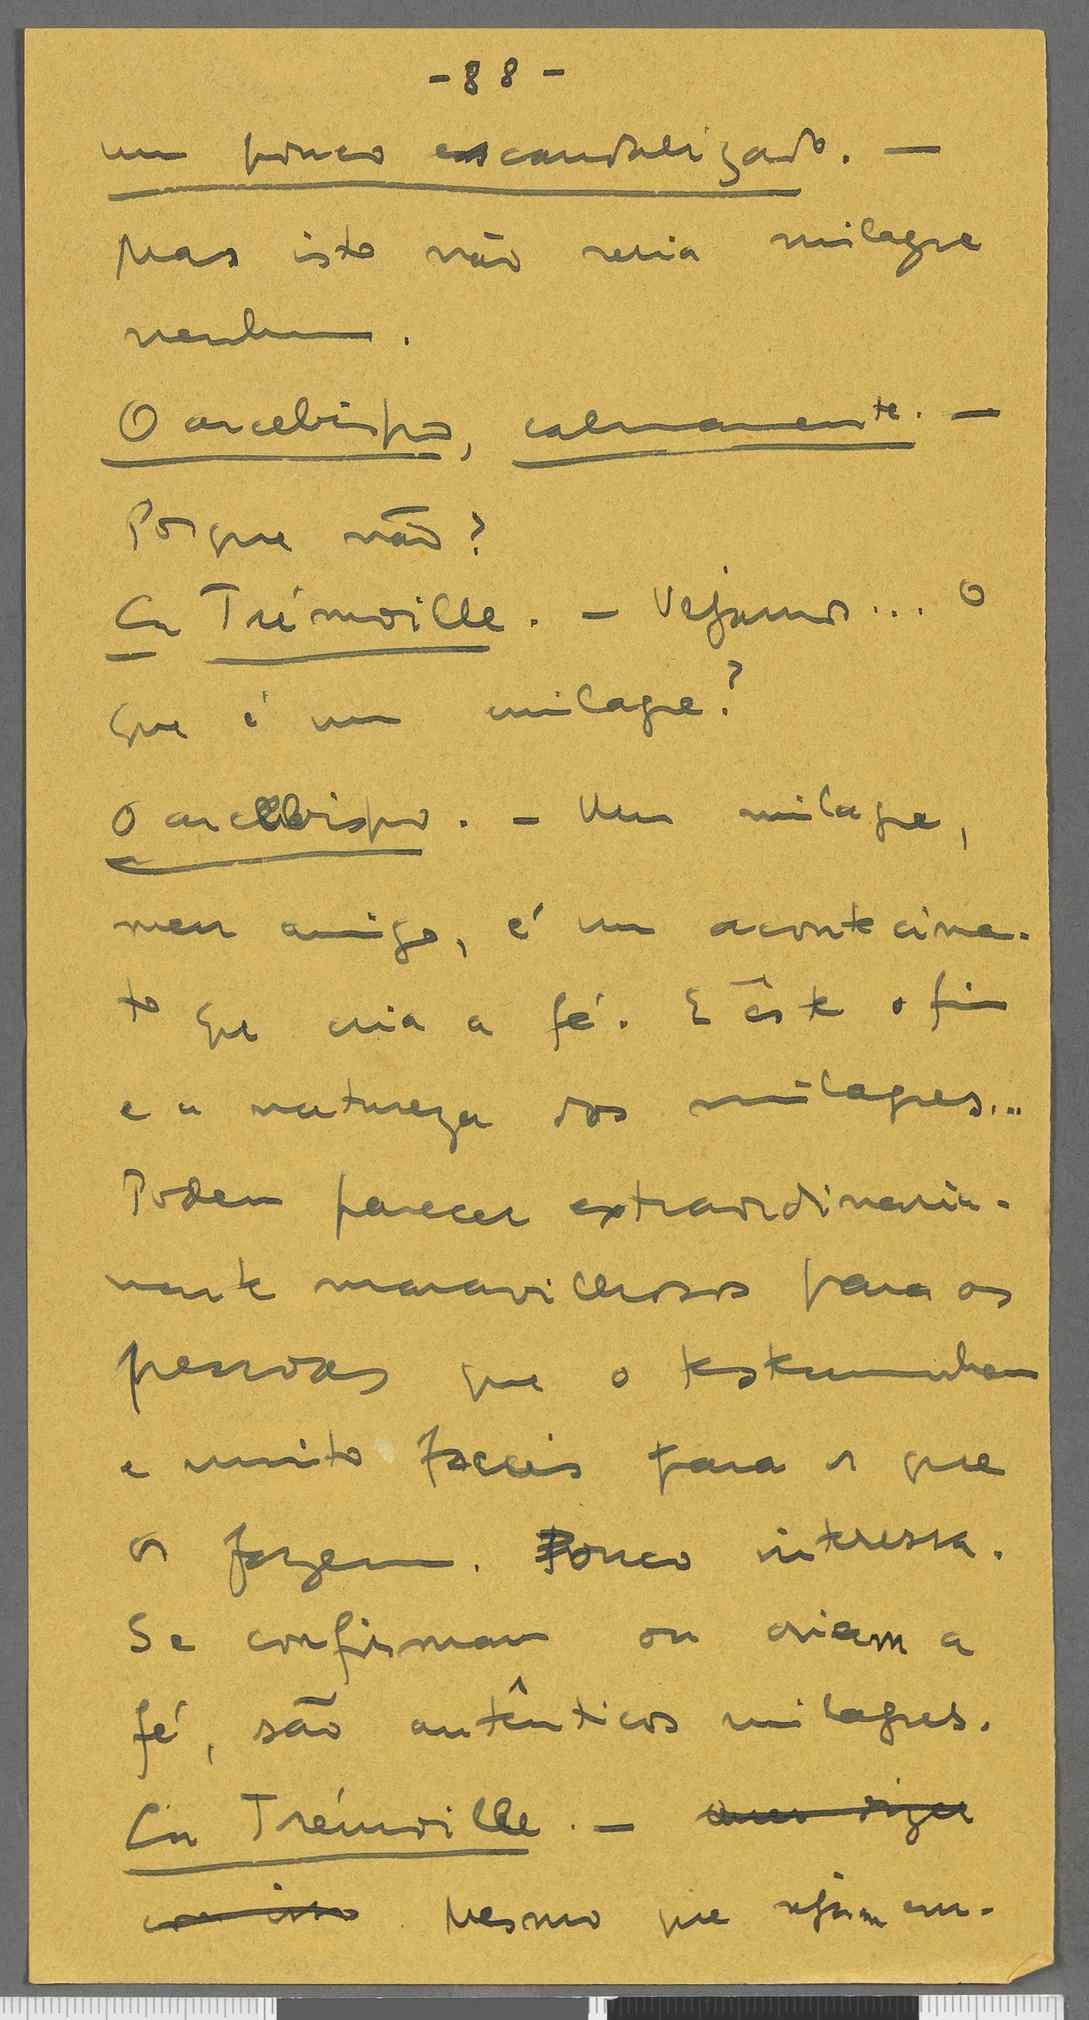 -88-
um pouco escandalizado. —
Mas isto não seria milagre
nenhum.
O arcebispo, calmamente. —
Porque não?
La Trémoille. — Vejamos... O
que é um milagre?
O arcebispo. — Um milagre,
meu amigo, é um acontecime-
to que cria a fé. E êste o fim
e a natureza dos milagres...
Podem parecer extraordinaria-
mente maravilhosos para as
pessoas que o testemunham
e muito faceis para os que
os fazem. Pouco interessa.
Se confirmam ou criam a
fé, são autênticos milagres.
La Trémoille. — Quer dizer
com isso Mesmo que sejam em-